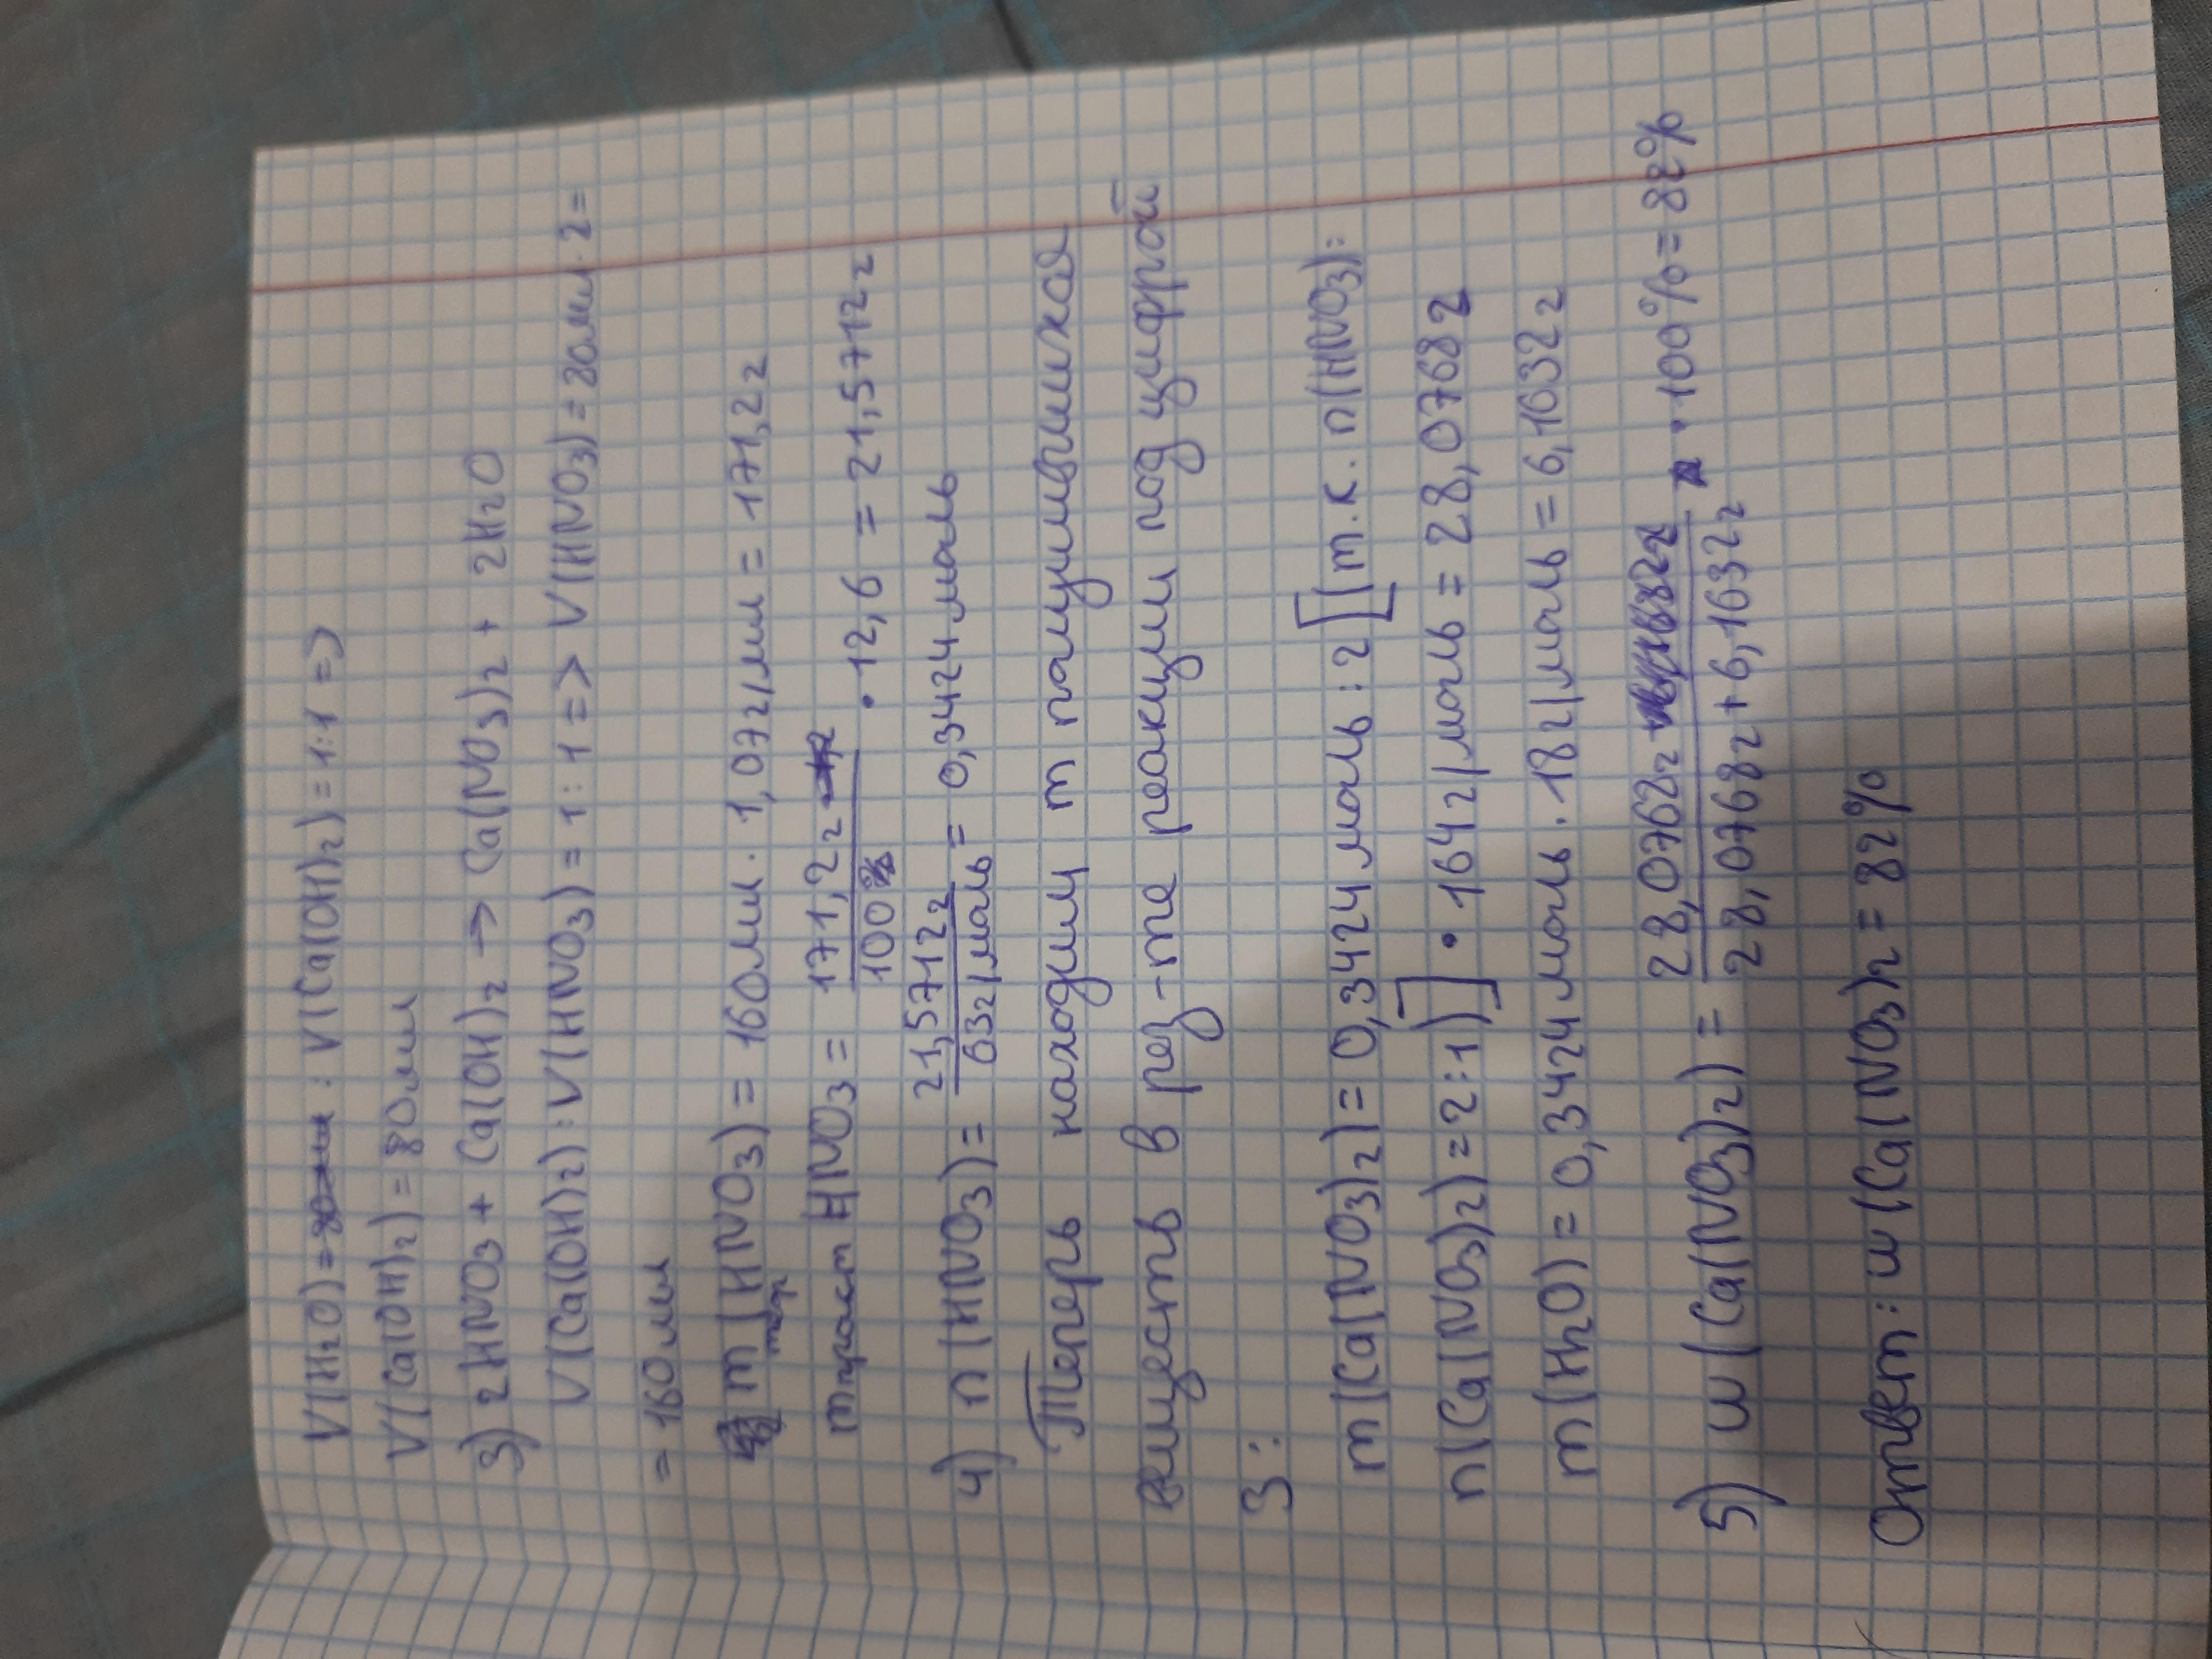 V(H₂O) = : V(Ca(OH)₂) = 1:1 =>
V(Ca(OH)₂) = 80мл
3) 2HNO₃ + Ca(OH)₂ → Ca(NO₃)₂ + 2H₂O
V(Ca(OH)₂) : V(HNO₃) = 1 : 1 => V(HNO₃) = 80мл · 2 =
= 160мл
m твор (HNO₃) = 160мл · 1,07г/мл = 171,2г
m чист HNO₃ = 171,2г / 100 · 12,6 = 21,5712г
4) n(HNO₃) = 21,5712г / 63г/моль = 0,3424моль
Теперь находим m получившихся
веществ в рез-те реакции под цифрой
3:
m(Ca(NO₃)₂) = 0,3424моль : 2 [(т.к. n(HNO₃):
n(Ca(NO₃)₂) = 2:1)] · 164г/моль = 28,0768г
m(H₂O) = 0,3424моль · 18г/моль = 6,1632г
5) w(Ca(NO₃)₂) = 28,0762г / 28,0768г + 6,1632г · 100% = 82%
Ответ: w(Ca(NO₃)₂ = 82%